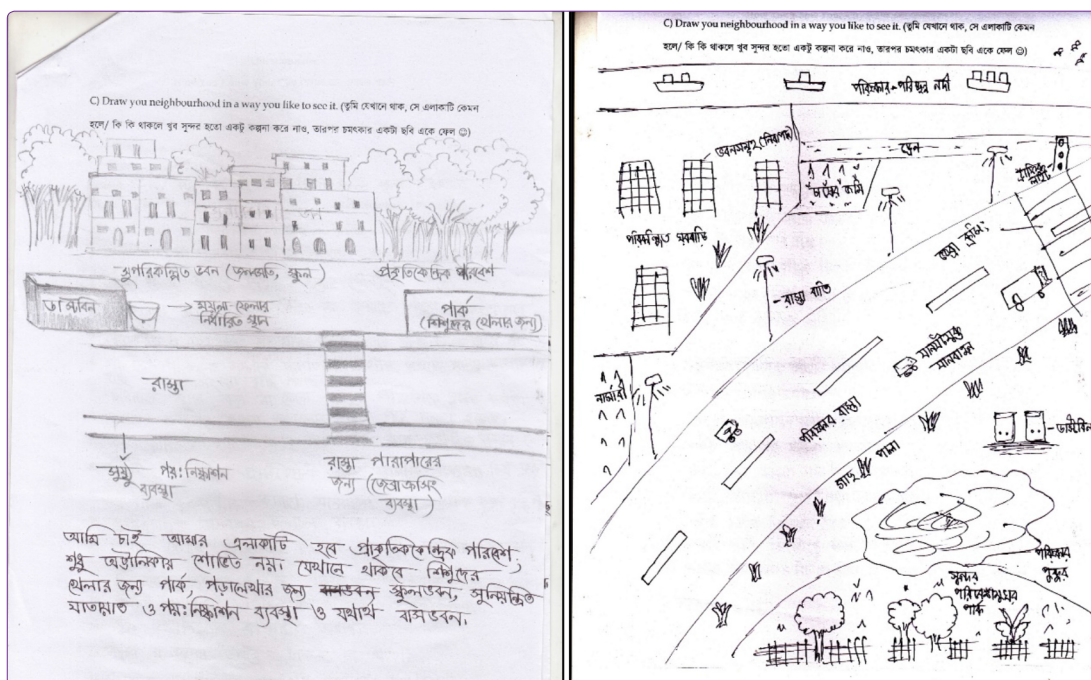 C) Draw you neighbourhood in a way you like to see it. (তুমি যেখানে থাক, সে এলাকাটি কেমন
হলে/ কি কি থাকলে খুব সুন্দর হতো একটু কল্পনা করে নাও, তারপর চমৎকার একটা ছবি একে ফেল ☺)
সুপরিকল্পিত ভবন (স্কুল)
প্রকৃতিকেন্দ্রিক পরিবেশ
ডাস্টবিন
ময়লা ফেলার
নির্ধারিত স্থান
পার্ক
(শিশুদের খেলার জন্য)
রাস্তা
সুষ্ঠু পয়ঃনিষ্কাশন
ব্যবস্থা
রাস্তা পারাপারের
জন্য (জেব্রাক্রসিং
ব্যবস্থা)
আমি চাই আমার এলাকাটি হবে প্রাকৃতিককেন্দ্রিক পরিবেশ,
শুধু অট্টালিকায় শোভিত নয়। যেখানে থাকবে শিশুদের
খেলার জন্য পার্ক, পড়ালেখার জন্য স্কুলভবন, সুনিয়ন্ত্রিত
যাতায়াত ও পয়ঃনিষ্কাশন ব্যবস্থা ও যথার্থ বাসভবন।
C) Draw you neighbourhood in a way you like to see it. (তুমি যেখানে থাক, সে এলাকাটি কেমন
হলে/ কি কি থাকলে খুব সুন্দর হতো একটু কল্পনা করে নাও, তারপর চমৎকার একটা ছবি একে ফেল ☺)
পরিষ্কার-পরিচ্ছন্ন নদী
ভবনসমূহ (নিরাপদ)
ড্রেন
চাষের জমি
ট্রাফিক
লাইট
পরিকল্পিত ঘরবাড়ি
জেব্রা ক্রসিং
রাস্তা বাতি
যানজটমুক্ত
যানবাহন
নার্সারী
পরিষ্কার রাস্তা
ডাস্টবিন
গাছ পালা
পরিষ্কার
পুকুর
সুন্দর
পার্ক